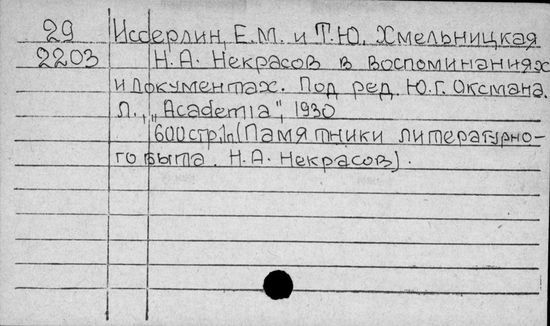 29 Иссерлин, Е.М. и Т.Ю. Хмельницкая
2203 Н.А. Некрасов в воспоминаниях
и документах. Под ред. Ю.Г. Оксмана.
Л., "Academia", 1930
600 стр. (Памятники литературно-
го быта. Н.А. Некрасов).